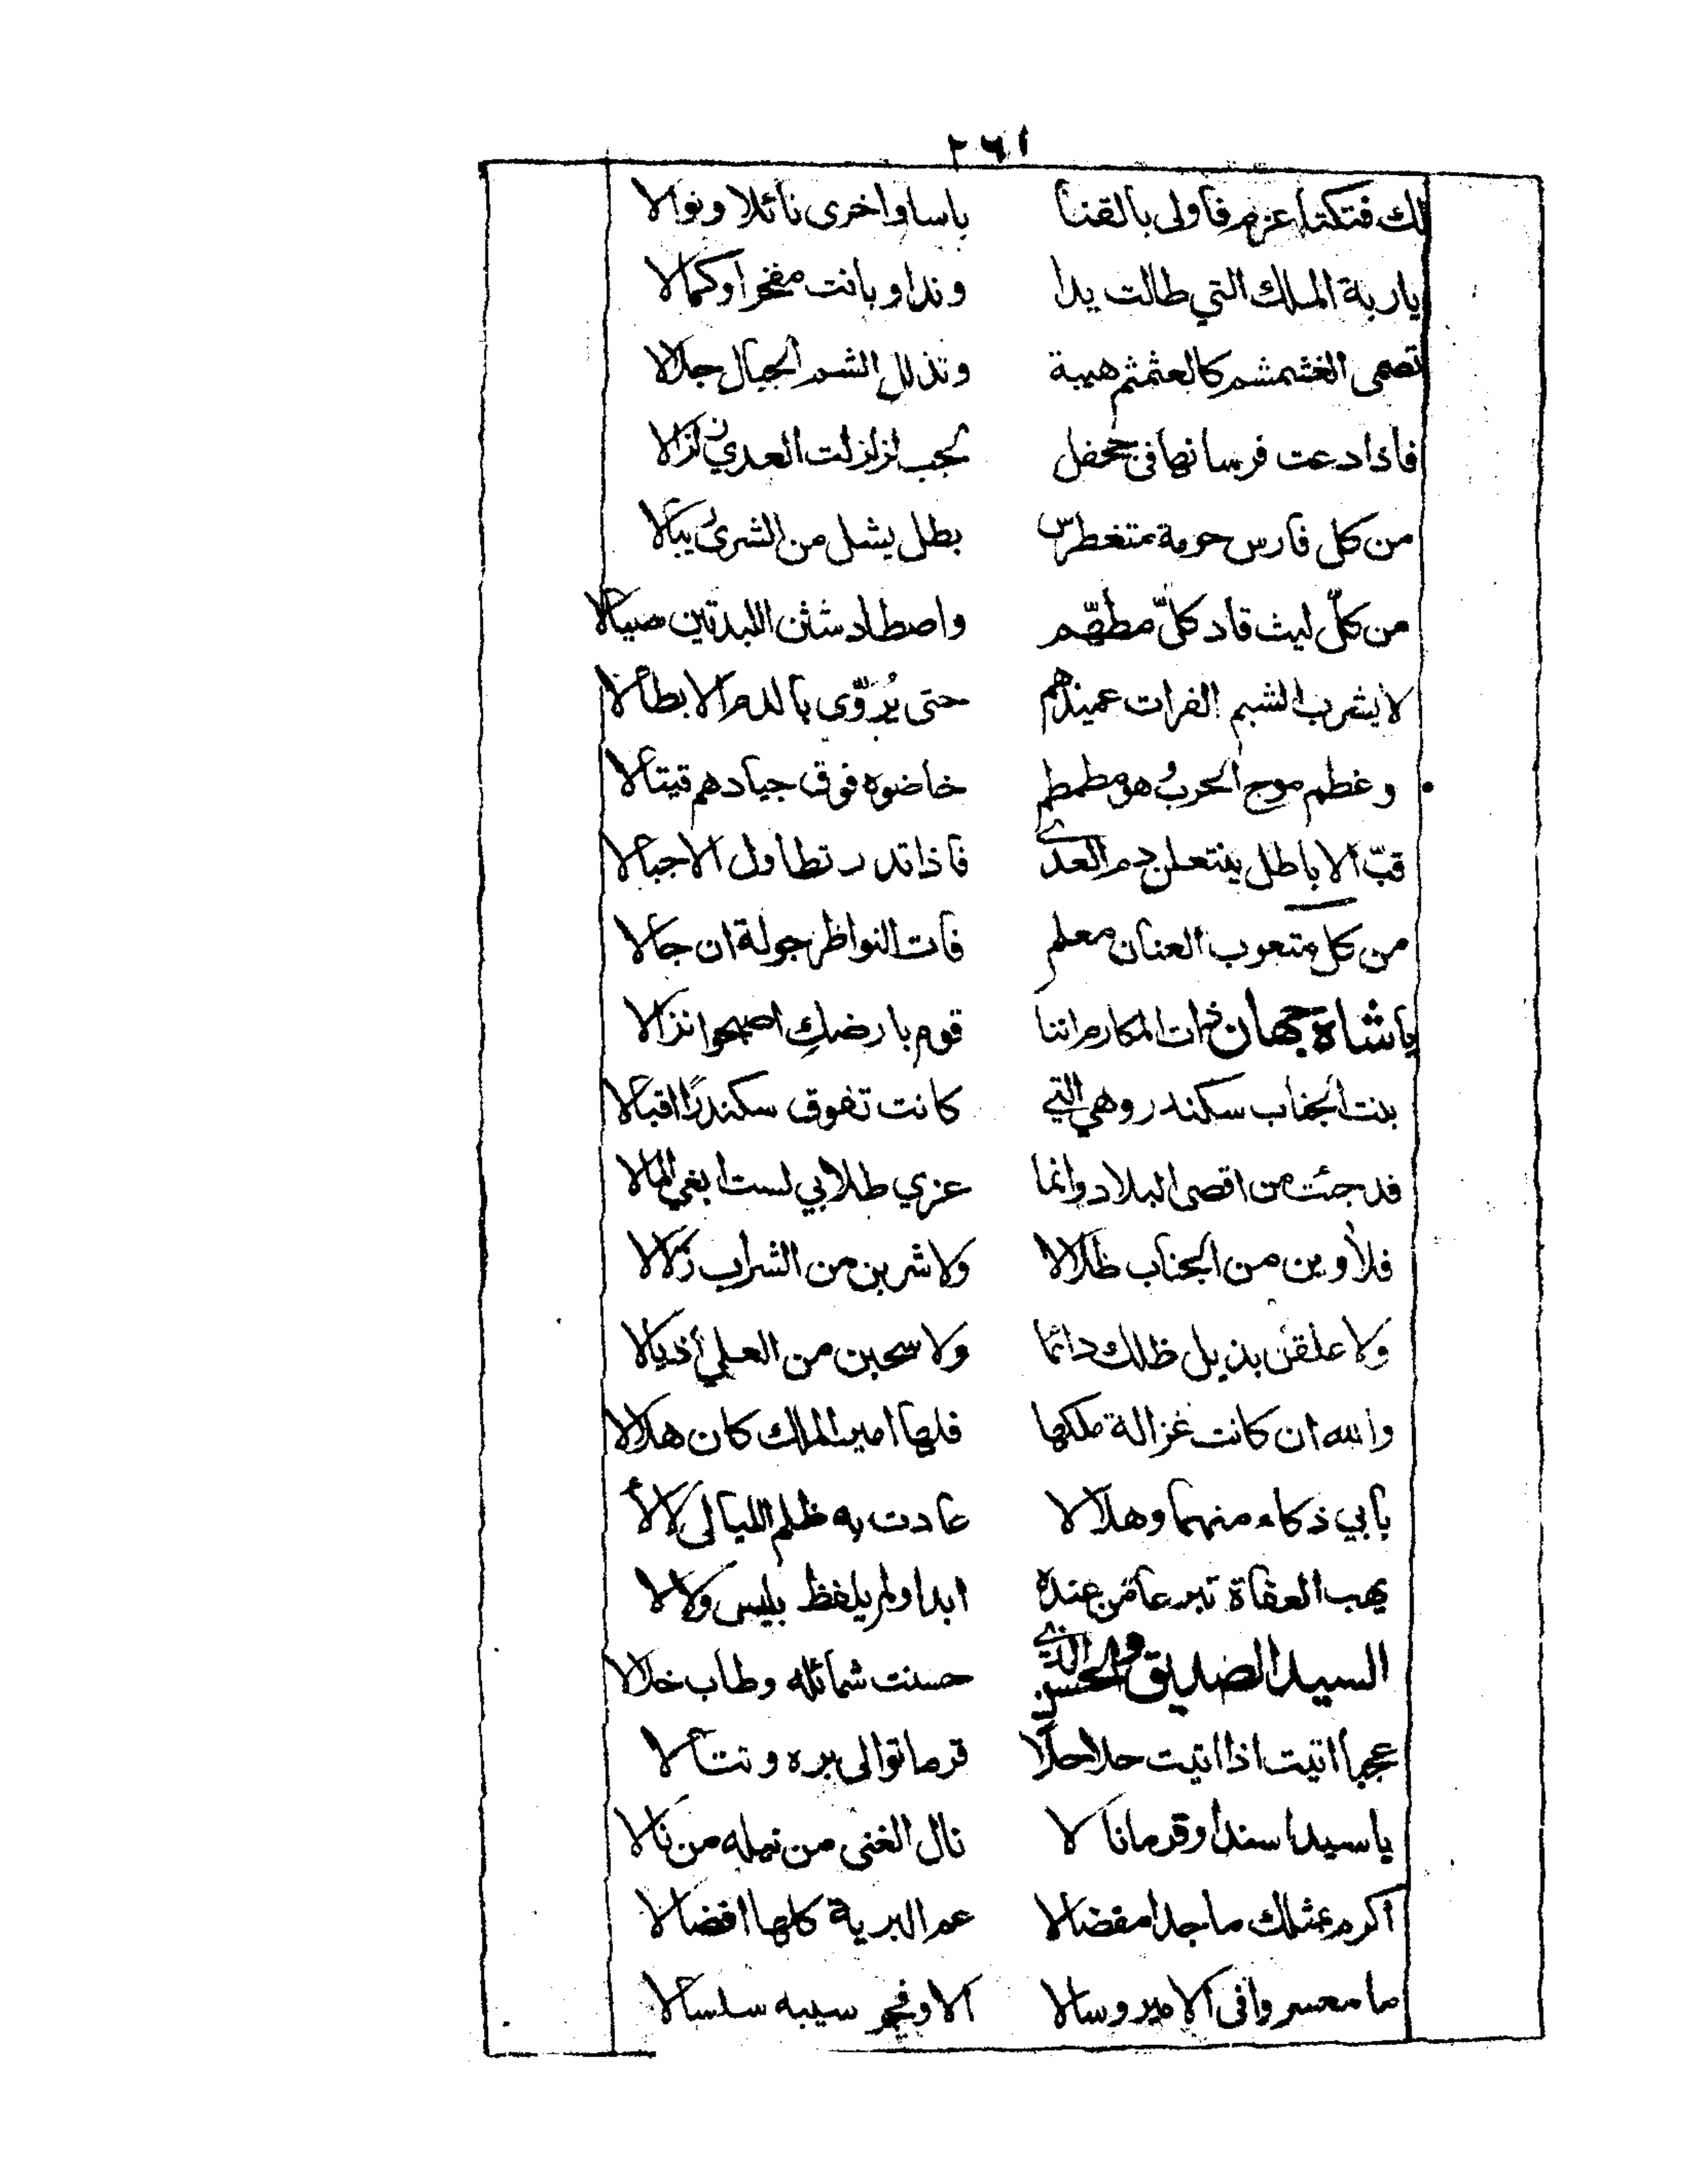 ٢٦١
لك فتكتا عزم فاولى بالقنا باسا واخرى نائلا ونوالا
ياربة الملك التي طالت يدا وندا وبانت مفخرا وكمالا
تصمى الغشمشم كالعثمثم هيبة وتذلل الشم الجبال جلالا
فاذا دعت فرسانها في جحفل لجب لزلزلت العدى زلزالا
من كل فارس حومة متغطرس بطل يشل من الشرى ريبالا
من كلّ ليث قاد كلّ مطهّم واصطاد شثن اللبدتين صيالا
لا يشرب الشبم الفرات عميدهم حتى يُروّى بالدم الابطالا
وغطم موج الحرب وهو مطمطم خاضوه فوق جيادهم قيتالا
قبّ الاباطل ينتعلن دم العدى فاذا تدر تطاول الاجبالا
من كل متعوب العنان معلم فات النواظر جولة ان جالا
ياشاه جهان ذات المكارم اننا قوم بارضكِ اصبحوا نزالا
بنت الجناب سكندر وهي التي كانت تفوق سكندرًا اقبالا
قد جئت من اقصى البلاد وانما عزي طلابي لست ابغي المالا
فلأوين من الجناب ظلالا ولاشربن من الشراب زلالا
ولاعلقن بذيل ظلك دائما ولاسحبن من العلى أذيالا
والله ان كانت غزالة ملكها فلها امير الملك كان هلالا
بابي ذكاء منهما وهلالا عادت به ظلم الليالى لالأ
يهب العفاة تبرعا من عنده ابدا ولم يلفظ بليس ولا لا
السيد الصديق والحسن الذى حسنت شمائله وطاب خلالا
عجبا اتيت اذا اتيت حلاحلا قرما توالى بره وتتالا
ياسيدا سندا وقرما نالا نال الغنى من نيله من نالا
اكرم بمثلك ماجدا مفضالا عم البرية كلها افضالا
ما معسر وافى الامير وسالا الا وفجر سيبه سلسالا